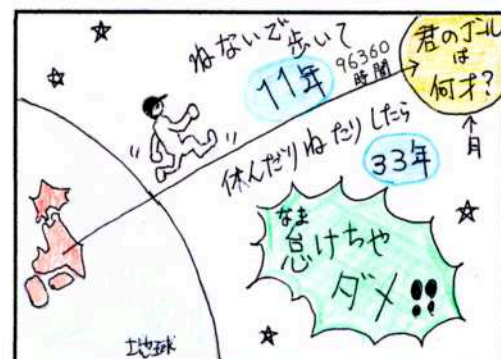 ねないで歩いて
11年
96360
時間
君のゴール
は
何才?
↑
月
休んだりねたりしたら
33年
なま
怠けちゃ
ダメ!!
地球